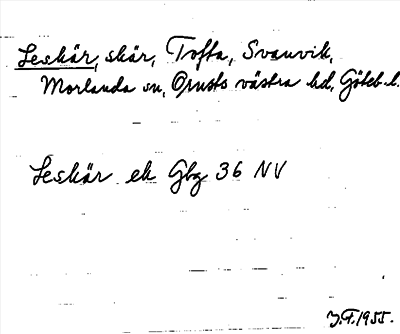 Leskär, skär, Tofta, Svanvik,
Morlanda sn, Orusts västra hd, Göteb. l.
Leskär ek Gbg 36 NV
J.F. 1955.